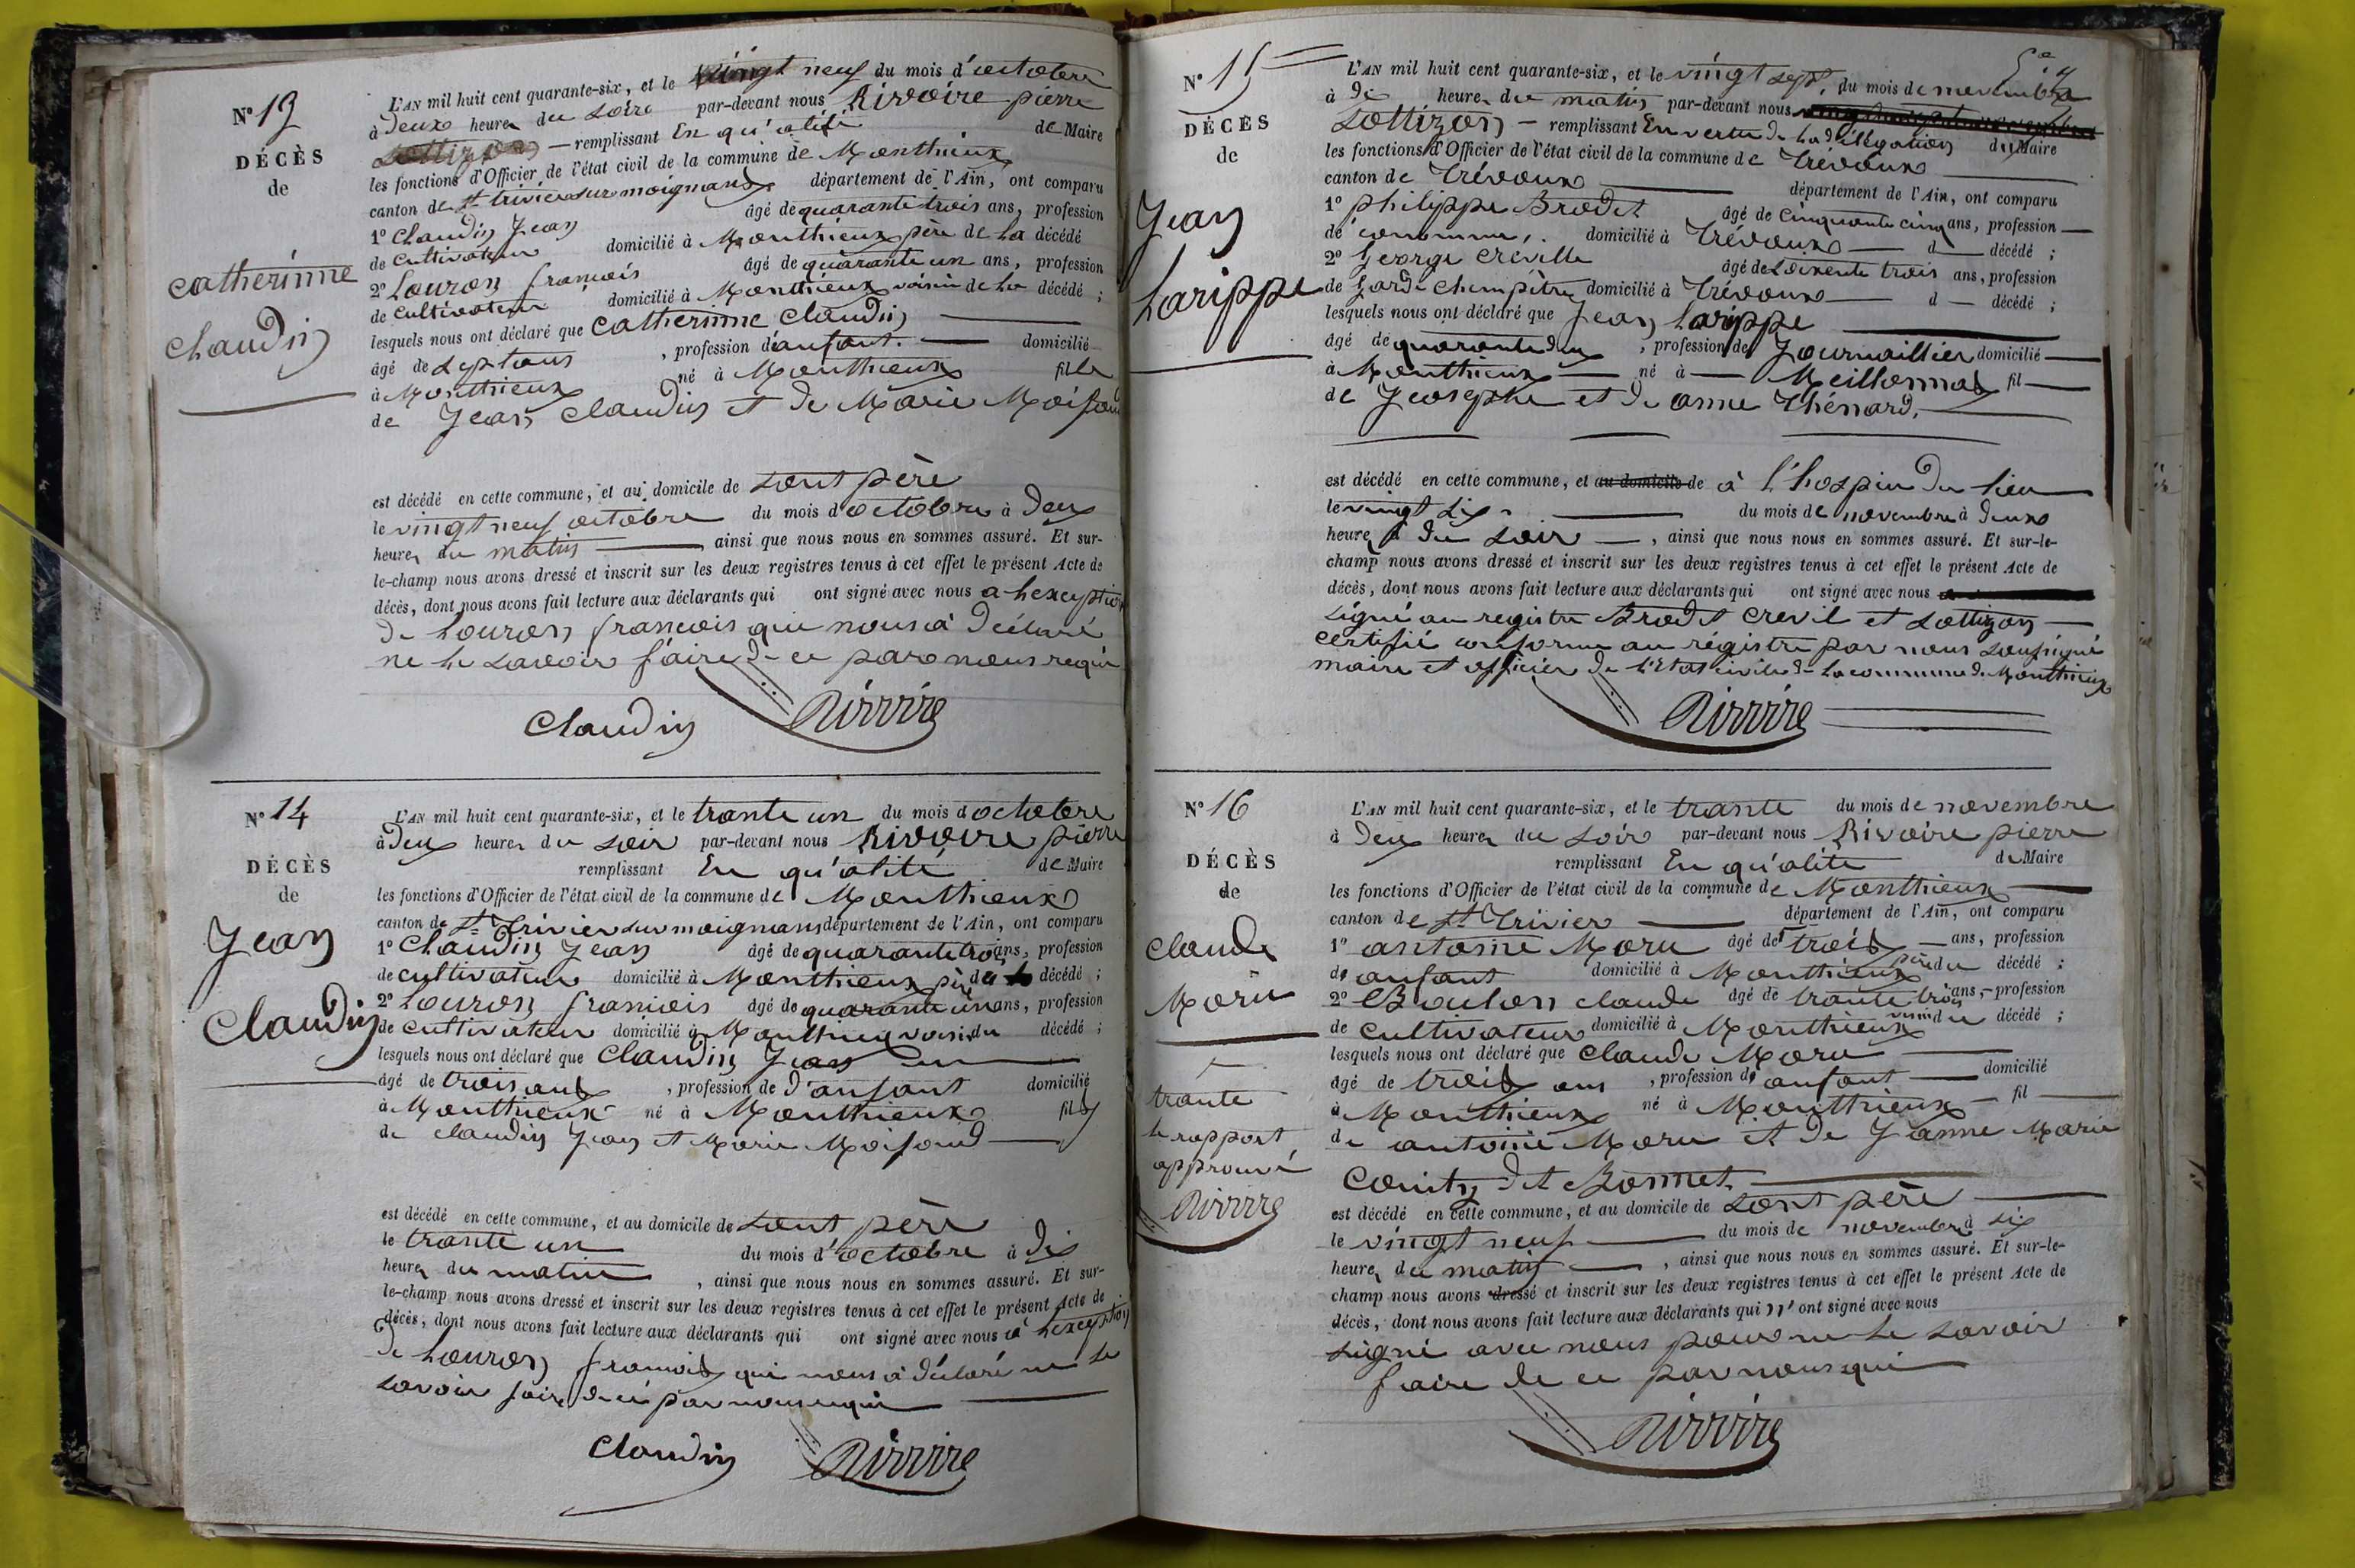 N° 13
DÉCÈS
de
Catherinne
Claudin
L'AN mil huit cent quarante-six, et le vingt neuf du mois d'octobre
à deux heures du soire par-devant nous Rivoire pierre
— remplissant En qu'alité de Maire
les fonctions d'Officier de l'état civil de la commune de Monthieux
canton de St trivier sur moignans département de l'Ain, ont comparu
1° Claudin Jean âgé de quarante trois ans, profession
de Cultivateur domicilié à Monthieux père de la décédé
2° Louron francois âgé de quarante un ans, profession
de Cultivateur domicilié à Monthieux voisin de la décédé ;
lesquels nous ont déclaré que Catherinne Claudin
âgé de sept ans, profession d'anfant. domicilié
à Monthieux né à Monthieux fille
de Jean Claudin et de Marie Moifond
est décédé en cette commune, et au domicile de sont père
le vingt neuf octobre du mois d'octobre à deux
heures du matin ainsi que nous nous en sommes assuré. Et sur-
le-champ nous avons dressé et inscrit sur les deux registres tenus à cet effet le présent Acte de
décès, dont nous avons fait lecture aux déclarants qui ont signé avec nous a lexception
de Louron francois qui nous a déclaré
ne le savoir faire de ce par nous requi
Claudin Rivoire
N° 14
DÉCÈS
de
Jean
Claudin
L'AN mil huit cent quarante-six, et le trante un du mois d'octobre
à deux heures du soir par-devant nous Rivoire pierre
remplissant En qu'alité de Maire
les fonctions d'Officier de l'état civil de la commune de Monthieux
canton de St Trivier sur moignans département de l'Ain, ont comparu
1° Claudin Jean âgé de quarante trois ans, profession
de cultivateur domicilié à Monthieux père du décédé ;
2° Louron francois âgé de quarante un ans, profession
de cultivateur domicilié à Monthieux voisin du décédé ;
lesquels nous ont déclaré que Claudin Jean
âgé de trois ans, profession de d'anfant domicilié
à Monthieux né à Monthieux fils
de Claudin Jean et Marie Moifond
est décédé en cette commune, et au domicile de sont père
le trante un du mois d'octobre à dix
heures du matin, ainsi que nous nous en sommes assuré. Et sur-
le-champ nous avons dressé et inscrit sur les deux registres tenus à cet effet le présent Acte de
décès, dont nous avons fait lecture aux déclarants qui ont signé avec nous à lexception
de Louron francois qui nous a déclaré ne le
savoir faire de ce par nous requi
Claudin Rivoire
N° 15
DÉCÈS
de
Jean
Larippe
L'AN mil huit cent quarante-six, et le vingt sept, du mois de novembre
à dix heures du matin par-devant nous
Sottizon — remplissant En vertu de la délégation du Maire
les fonctions d'Officier de l'état civil de la commune de Trévoux
canton de Trévoux département de l'Ain, ont comparu
1° philippe Brodet âgé de cinquante cinq ans, profession
de économe, domicilié à Trévoux d décédé ;
2° George Creville âgé de soixente trois ans, profession
de garde champêtre domicilié à Trévoux d décédé ;
lesquels nous ont déclaré que Jean Larippe
âgé de quarante deux, profession de Journaillier domicilié
à Monthieux né à Meillonnas fil
de Jeosephe et de anne Thénard,
est décédé en cette commune, et au domicile de à l'hospice du lieu
le vingt six du mois de novembre à deux
heures du soir, ainsi que nous nous en sommes assuré. Et sur-le-
champ nous avons dressé et inscrit sur les deux registres tenus à cet effet le présent Acte de
décès, dont nous avons fait lecture aux déclarants qui ont signé avec nous
signé au registre Brodet Crevil et Sottizon
certifié conforme au régistre par nous soussigné
maire et officier de l'Etat civile de la commune de Monthieux
Rivoire
N° 16
DÉCÈS
de
Claude
Moru
trante
le rapport
approuvé
Rivoire
L'AN mil huit cent quarante-six, et le trante du mois de novembre
à deux heures du soir par-devant nous Rivoire pierre
remplissant En qu'alite de Maire
les fonctions d'Officier de l'état civil de la commune de Monthieux
canton de St Trivier département de l'Ain, ont comparu
1° antoine Moru âgé de trois ans, profession
de anfant domicilié à Monthieux père du décédé ;
2° Boulon claude âgé de trante trois ans, profession
de cultivateur domicilié à Monthieux voisin du décédé ;
lesquels nous ont déclaré que Claude Moru
âgé de trois ans, profession de anfant domicilié
à Monthieux né à Monthieux fil
de antoine Moru et de Jeanne Marie
Cointy dit Bonnet
est décédé en cette commune, et au domicile de sont père
le vingt neuf du mois de novembre à six
heures du matin, ainsi que nous nous en sommes assuré. Et sur-le-
champ nous avons dressé et inscrit sur les deux registres tenus à cet effet le présent Acte de
décès, dont nous avons fait lecture aux déclarants qui n' ont signé avec nous
signé avec nous pour ne le savoir
faire de ce par nous qui
Rivoire